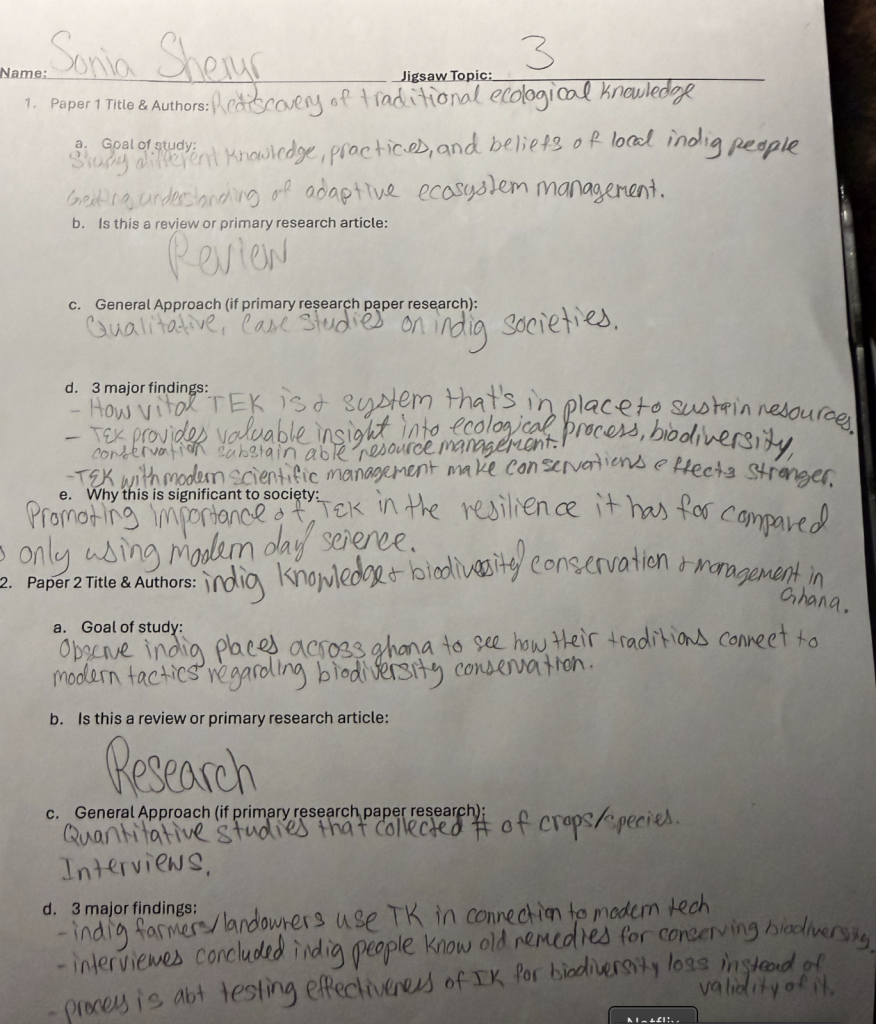 Name: Sonia Jigsaw Topic: 3
1. Paper 1 Title & Authors: Rediscovery of traditional ecological knowledge
a. Goal of study:
Study different knowledge, practices, and beliefs of local indig people
Getting understanding of adaptive ecosystem management.
b. Is this a review or primary research article:
Review
c. General Approach (if primary research paper research):
Qualitative, Case studies on indig societies.
d. 3 major findings:
- How vital TEK is & system that's in place to sustain resources.
- TEK provides valuable insight into ecological process, biodiversity,
conservation substain able resource management.
- TEK with modern scientific management make conservations effects stronger.
e. Why this is significant to society:
Promoting importance of TEK in the resilience it has for compared
only using modern day science.
2. Paper 2 Title & Authors: indig knowledge & biodivosity conservation & management in
Ghana.
a. Goal of study:
Observe indig places across ghana to see how their traditions connect to
modern tactics regarding biodiversity conservation.
b. Is this a review or primary research article:
Research
c. General Approach (if primary research paper research):
Quantitative studies that collected # of crops/species.
Interviews.
d. 3 major findings:
- indig farmers/landowners use TK in connection to modern tech
- interviewes concluded indig people know old remedies for conserving biodiversity.
- process is abt testing effectiveness of IK for biodiversity loss instead of
validity of it.
Netflix